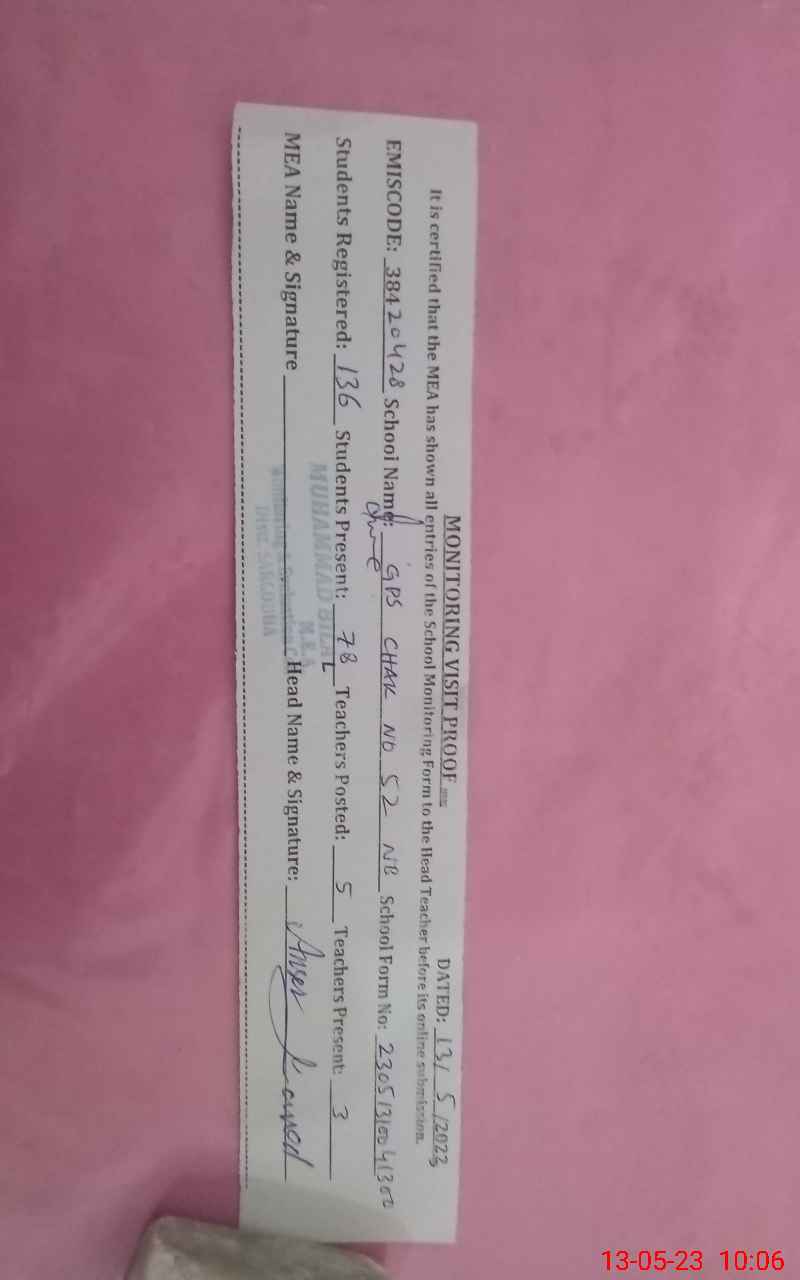 MONITORING VISIT PROOF
DATED: 13/ 5 /2023
It is certified that the MEA has shown all entries of the School Monitoring Form to the Head Teacher before its online submission.
EMISCODE: 38420428 School Name: GPS CHAK NO 52 NB School Form No: 23051310041300
Students Registered: 136 Students Present: 78 Teachers Posted: 5 Teachers Present: 3
MEA Name & Signature Head Name & Signature: Anser
MUHAMMAD BILAL
M.E.A
Distt: SARGODHA
13-05-23 10:06